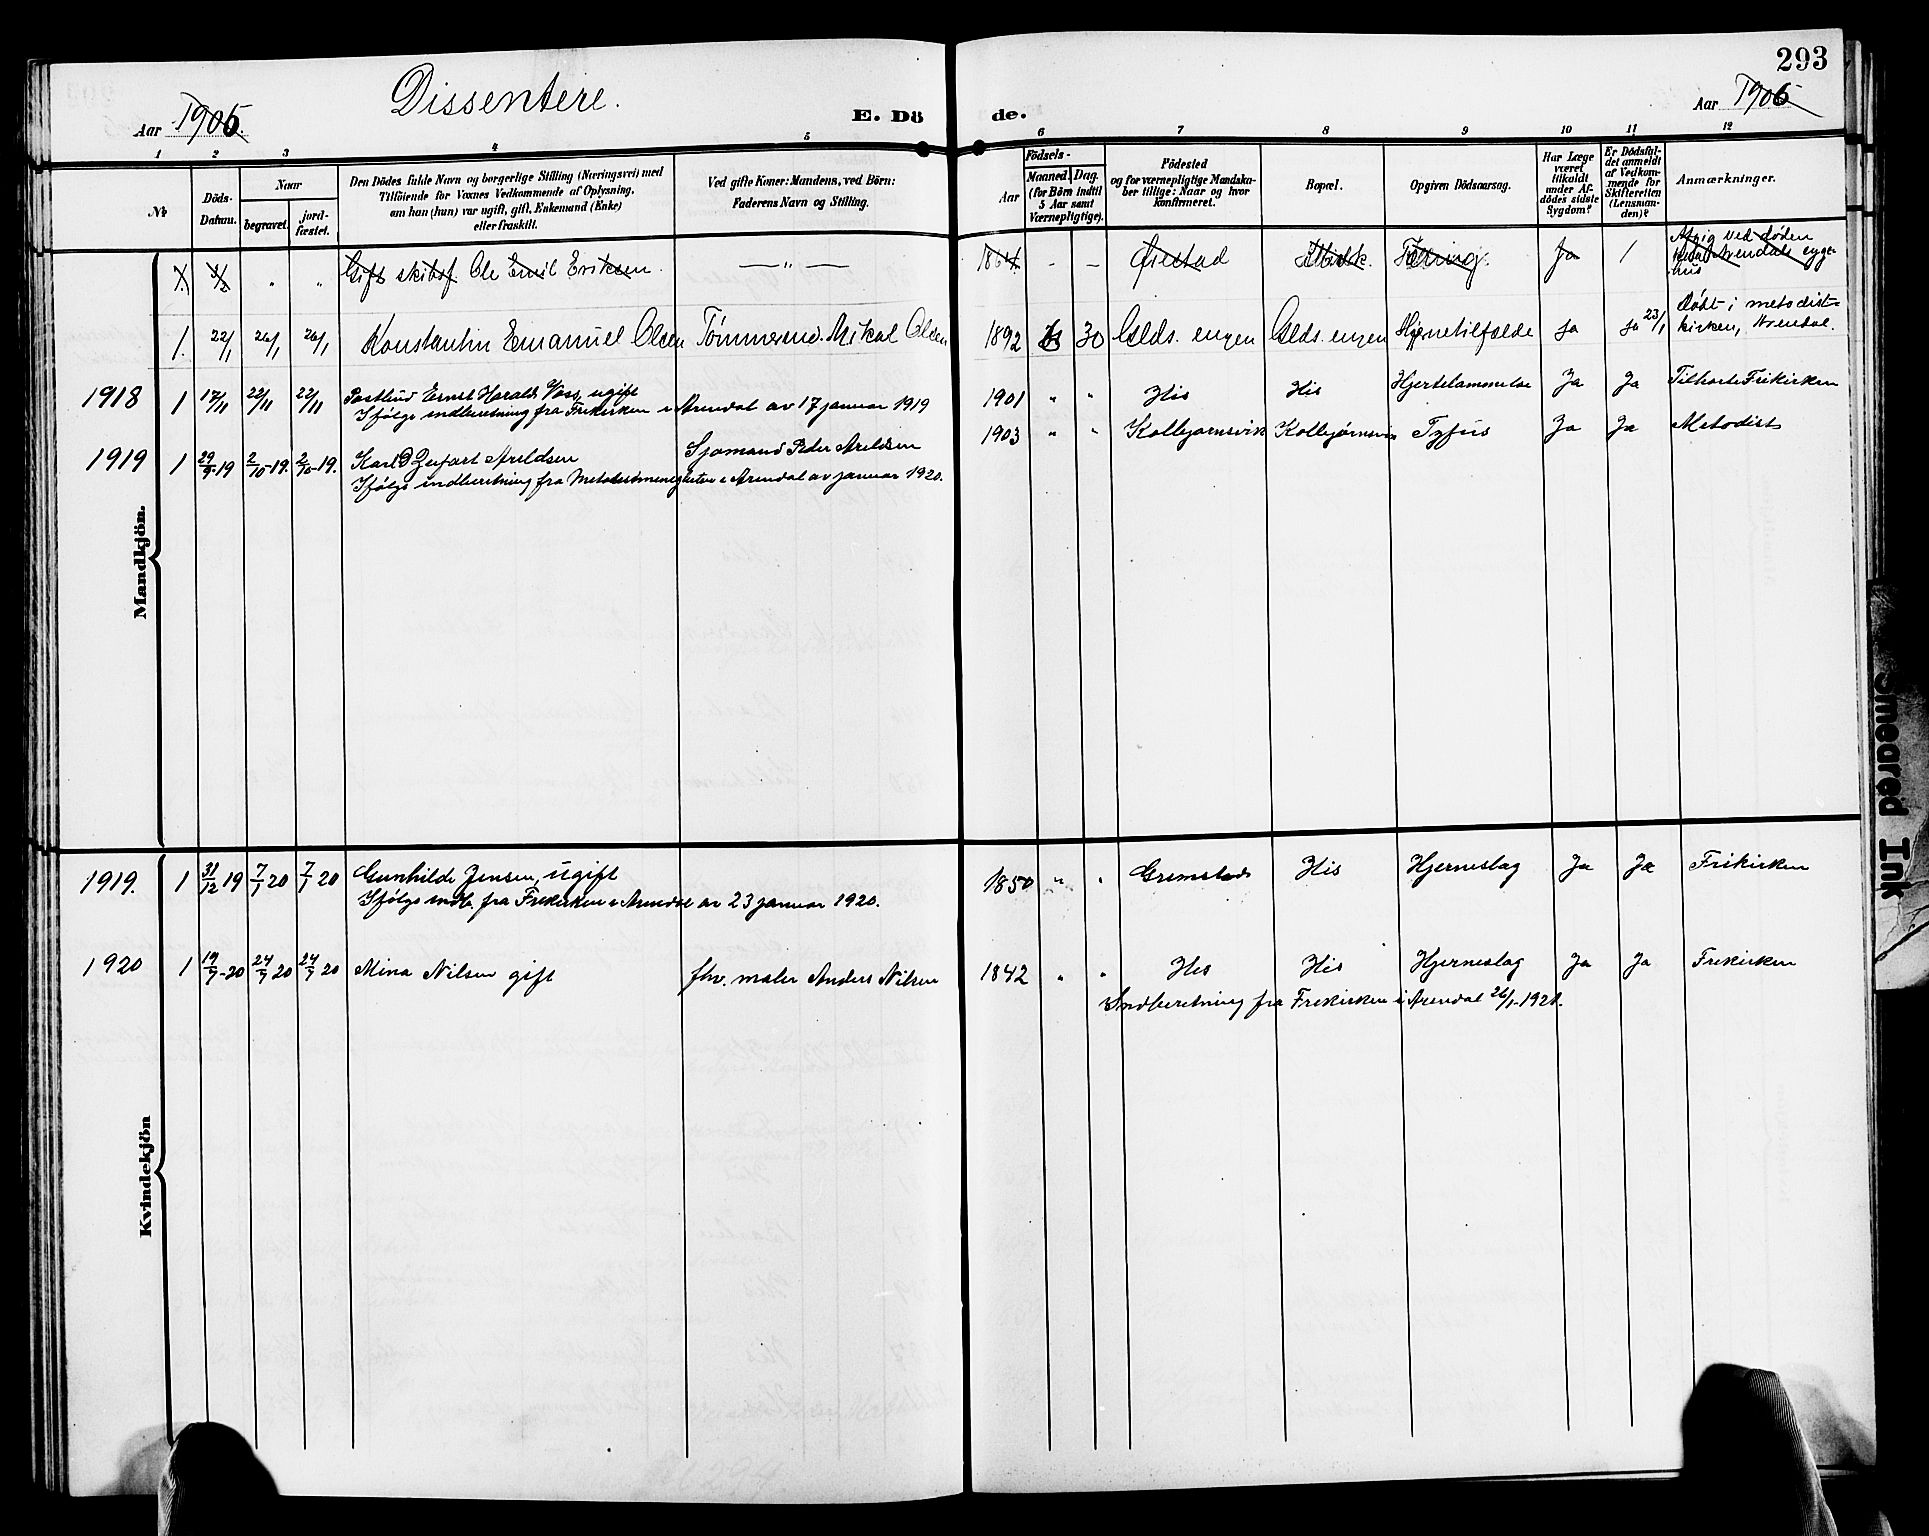 293
Dissentere.
Aar 1906.
E. Dö
de.
Aar 1906
1 2 3 4 5 6 7 8 9 10 11 12
№
Döds-
Datum.
Naar
begravet.
jord-
fæstet.
Den Dödes fulde Navn og borgerlige Stilling (Næringsvei) med
Tilföiende for Voxnes Vedkommende af Oplysning,
om han (hun) var ugift, gift, Enkemand (Enke)
eller fraskilt.
Ved gifte Koner: Mandens, ved Börn:
Faderens Navn og Stilling.
Födsels-
Aar
Maaned. Dag.
(for Börn indtil
5 Aar samt
Værnepligtige).
Födested
og for værnepligtige Mandska-
ber tillige: Naar og hvor
konfirmeret.
Bopæl.
Opgiven Dödsaarsag.
Har Læge
været
tilkaldt
under Af-
dödes sidste
Sygdom?
Er Dödsfal-
det anmeldt
af Vedkom-
mende for
Skifteretten
(Lensman-
den)?
Anmærkninger.
Mandkjön.
1. " " Gift skibsf. Ole Emil Eriksen. — " — 1864 - - Øiestad Tæring. Ja / ved døden
Arendals syge-
hus
1. 22/1 26/1 26/1 Konstantin Emanuel Olsen Tømmermd. Mikal Olsen 1892 30 Glds. engen Glds. engen Hjernetilfælde Ja Ja 23/1 Døbt i metodist-
kirken, Arendal.
1918 1 17/11 22/11 22/11 Postbud Ernst Harald Voss, ugift 1901 " " His His Hjertelammelse Ja Ja Tilhørte Frikirken
Ifølge indberetning fra Frikirken i Arendal av 17 januar 1919
1919 1 29/9-19 2/10-19. 2/10-19. Karl Arildsen Sjømand Peder Arildsen 1903 " " Kolbjornsvik Kolbjørnsvik Tyfus Ja Ja Metodist
Ifølge indberetning fra Metodistmenigheten i Arendal av januar 1920.
Kvindekjön
1919. 1 31/12 19 7/1 20 7/1 20 Gunhilde Jensen, ugift 1850 " " Grimstad His Hjerneslag Ja Ja Frikirken
Ifølge indb. fra Frikirken i Arendal av 23 januar 1920.
1920 1 19/7-20 24/7 20 24/7 20 Mina Nilsen gift fhv. maler Anders Nilsen 1842 " " His His Hjerneslag Ja Ja Frikirken
Indberetning fra Frikirken i Arendal 26/1-1921.
Smeared Ink